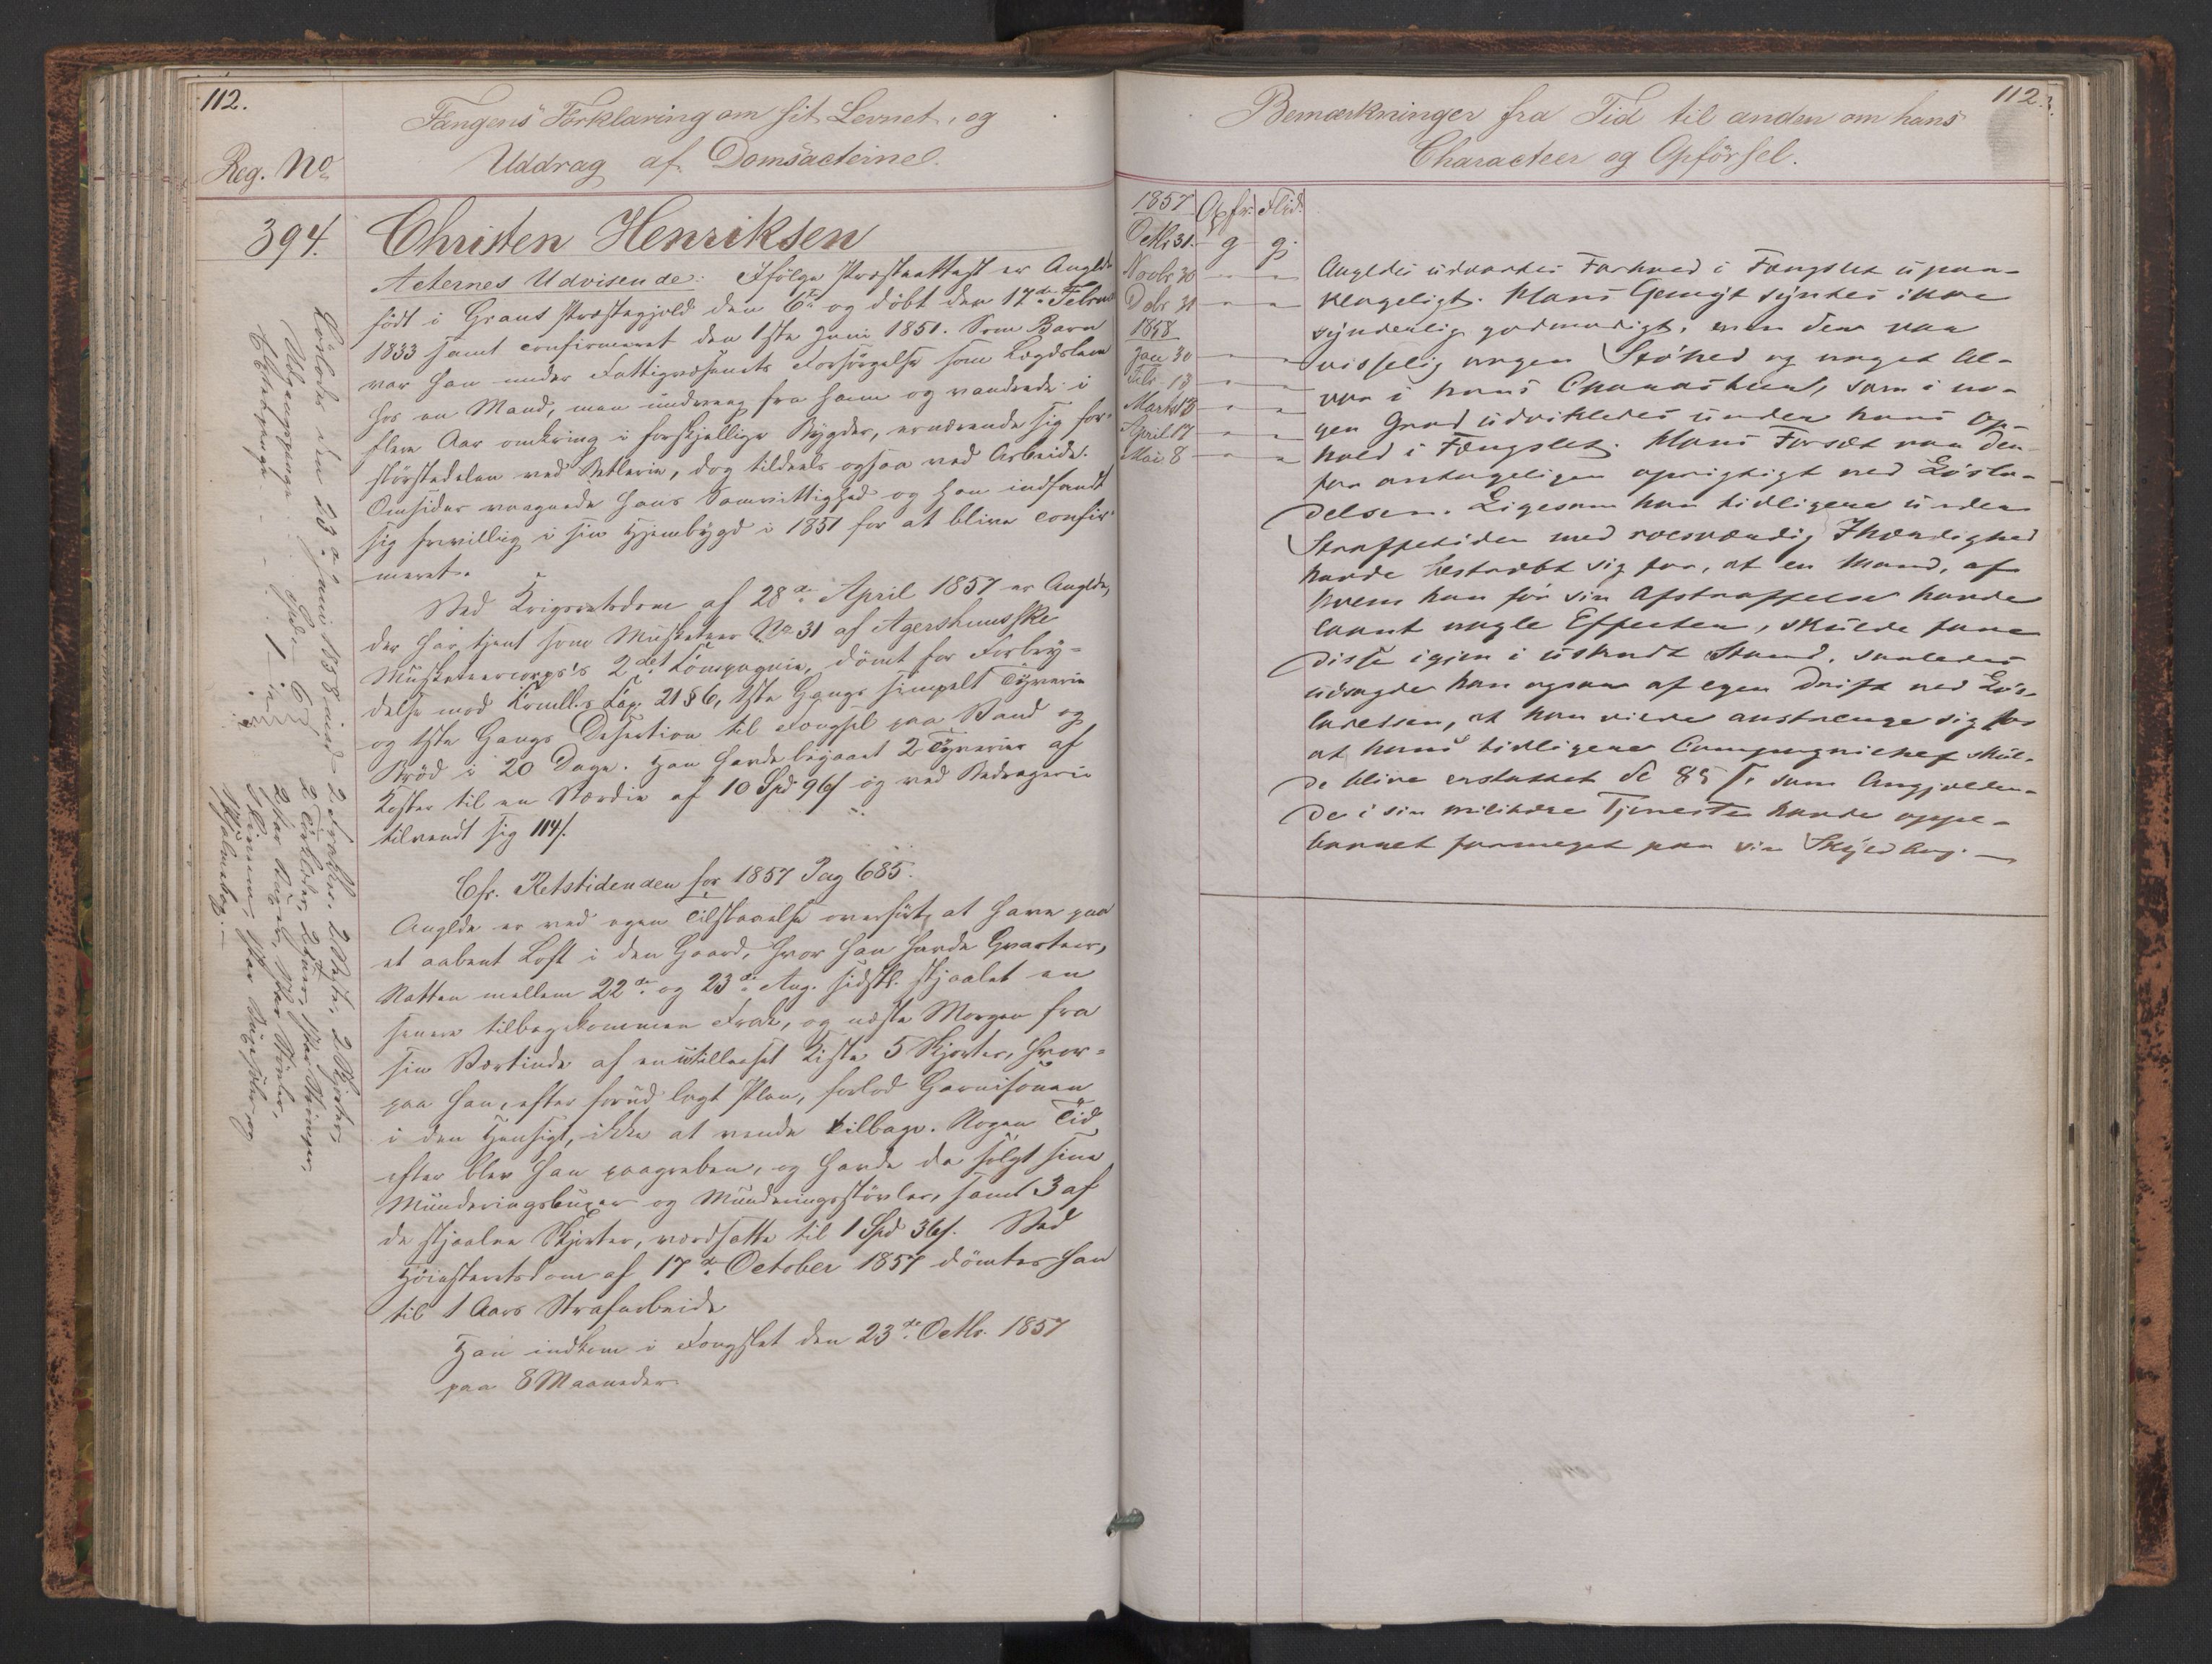 112.
Reg. No
Fangens Forklaring om sit Levnet, og
Uddrag af Domsacterne.
394.
Christen Henriksen
Acternes Udvisende: Ifölge Præsteattest er Anglde
födt i Grans Præstegjeld den 6te og döbt den 17de Februar
1833 samt confirmeret den 1ste Juni 1851. Som Barn
var han under Fattigvæsenets Forsörgelse som Lægdslem
hos en Mand, men undveeg fra ham og vandrede i
flere Aar omkring i forskjellige Bygder, ernærende sig for
störstedelen ved Betlerie, dog tildeels ogsaa ved Arbeide.
Omsider vaagnede hans Samvittighed og han indfandt
sig frivillig i sin Hjembygd i 1851 for at blive confir-
meret.
Ved Krigsretsdom af 28de April 1857 er Anglde,
der har tjent som Musketeer No 31 af Agershuusske
Musketeercorps's 2det Compagnie, dömt for Forbry-
delse mod Crmll.s Cap. 21 § 6, 1ste Gangs simpelt Tyverie
og 1ste Gangs Desertion til Fængsel paa Vand og
Bröd i 20 Dage. Han havde begaaet 2 Tyverier af
Koster til en Værdie af 10 Spd 96 s og ved Bedragerie
tilvendt sig 114 s.
Cfr. Retstidenden for 1857 Pag 685.
Anglde er ved egen Tilstaaelse overbeviist at have paa
et aabent Loft i den Gaard, hvor han havde Qvarteer,
Natten mellem 22de og 23de Aug. sidstl. stjaalet en
senere tilbagekommen Frak, og næste Morgen fra
sin Værtinde af en utillaaset Kiste 5 Skjorter, hvor-
paa han, efter forud lagt Plan, forlod Garnisonen
i den Hensigt, ikke at vende tilbage. Nogen Tid
efter blev han paagreben, og havde da solgt sine
Munderingsbuxer og Munderingsstövler, samt 3 af
de stjaalne Skjorter, værdsatte til 1 Spd 36 s. Ved
Höiesteretsdom af 17de October 1857 dömtes han
til 1 Aars Strafarbeide
Han indkom i Fængslet den 23de Octbr. 1857
paa 8 Maaneder.
Löslodes den 23de Juni 1858 med
Udgangspenge Spd 6
Flidspenge - - 1 -
2 Frakker, 2 Veste, 2 Skjorter,
2 Törklæder, 2 Huer, 3 Par Strömper,
2 Par Buxer, 1 Par Stövler,
og
Psalmebog.
112.
Bemærkninger fra Tid til anden om hans
Characteer og Opförsel.
1857 Opfr. Flid.
Octbr 31. g g.
Novbr 30 " "
Decbr 31 " "
1858
Jan 30 " "
Febr. 13 " "
Marts 13 " "
April 17 " "
Mai 8 " "
Angldes udvortes Forhold i Fængslet upaa-
klageligt. Hans Gemyt syntes ikke
synderlig godmodigt, men der var
visselig nogen Stöhed og noget Al-
vor i hans Characteer, som i no-
gen Grad udvikledes under hans Op-
hold i Fængslet. Hans Forsæt var der-
for antageligen oprigtigt ved Lösla-
delsen. Ligesom han tidligere under
Straffetiden med roesværdig Ihærdighed
havde bestræbt sig for, at en Mand, af
hvem han för sin Afstraffelse havde
laant nogle Effecter, skulde faae
disse igjen i uskadt Stand, saaledes
udsagde han ogsaa af egen Drift ved Lös-
ladelsen, at han vilde anstrenge sig for
at hans tidligere Compagnichef skul-
de blive erstattet de 85 s, som Angjelden-
de i sin militære Tjeneste havde oppe-
baaret formeget paa sin Skyldbog. —